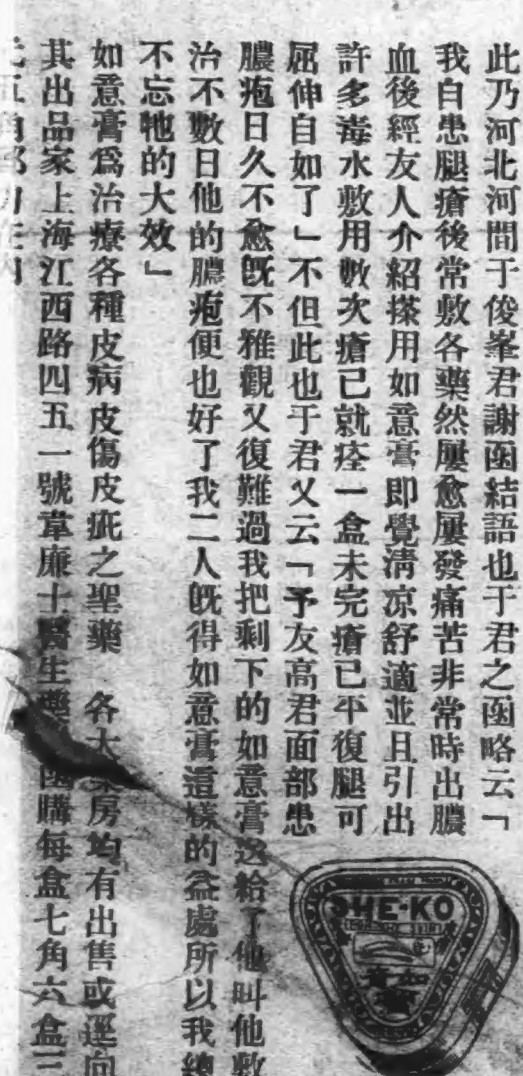 此乃河北河間于俊峯君謝函結語也于君之函略云「
我自患腿瘡後常敷各藥然屢愈屢發痛苦非常時出膿
血後經友人介紹搽用如意膏即覺清凉舒適並且引出
許多毒水敷用數次瘡已就痊一盒未完瘡已平復腿可
屈伸自如了」不但此也于君又云「予友高君面部患
膿疱日久不愈旣不雅觀又復難過我把剩下的如意膏送給了他叫他敷
治不數日他的膿疱便也好了我二人旣得如意膏這樣的益處所以我總
不忘牠的大效」
如意膏爲治療各種皮病皮傷皮疵之聖藥 各大藥房均有出售或逕向
其出品家上海江西路四五一號韋廉士醫生藥局函購每盒七角六盒三
SHE-KO
如意膏